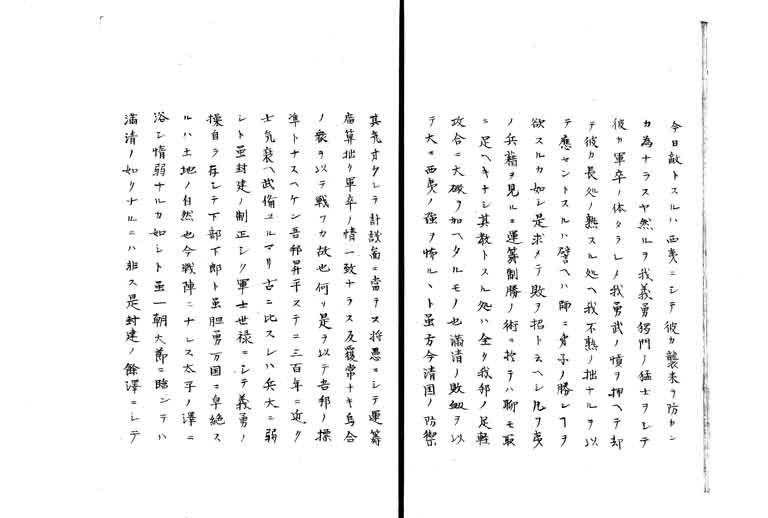 今日敵トスルハ西夷ニシテ彼カ襲来ヲ防カン
カ為ナラスヤ然ルヲ我義勇獨鬥ノ猛士ヲシテ
彼カ軍卒ノ体タラシメ我勇武ノ憤ヲ押ヘテ却
テ彼カ長処ノ熟スル処ヘ我不熟ノ拙ナルヲ以
テ應セントスルハ譬ヘハ師ニ弟子ノ勝レヿヲ
欲スルカ如シ是求メテ敗ヲ招ト云ヘシ凡ヲ夷
ノ兵籍ヲ見ルニ運筭制勝ノ術ニ於テハ聊モ取
ニ足ヘキナシ其教トスル処ハ全ク我邦ノ足軽
攻合ニ大砲ヲ加ヘタルモノ也滿清ノ敗衂ヲ以
テ大ニ西夷ノ強ヲ怖ルヽト虽方今清国ノ防禦
其先オクレテ計謀齒ニ當ラス将愚ニシテ運籌
庿算拙ク軍卒ノ情一致ナラス反覆常ナキ烏合
ノ衆ヲ以テ戦フカ故也何ソ是ヲ以テ吾邦ノ標
準トナスヘケン吾邦昇平ステニ三百年ニ近ク
士気衰ヘ武備ユルマリ古ニ比スレハ兵大ニ弱
シト虽封建ノ制正シク軍士世禄ニシテ義勇ノ
操自ラ存シテ下部下郎ト虽胆勇万国ニ卓絶ス
ルハ土地ノ自然也今戦陣ニナレス太平ノ澤ニ
浴シ惰弱ナルカ如シト虽一朝大節ニ臨ンテハ
滿清ノ如クナルニハ非ス是封建ノ餘澤ニシテ